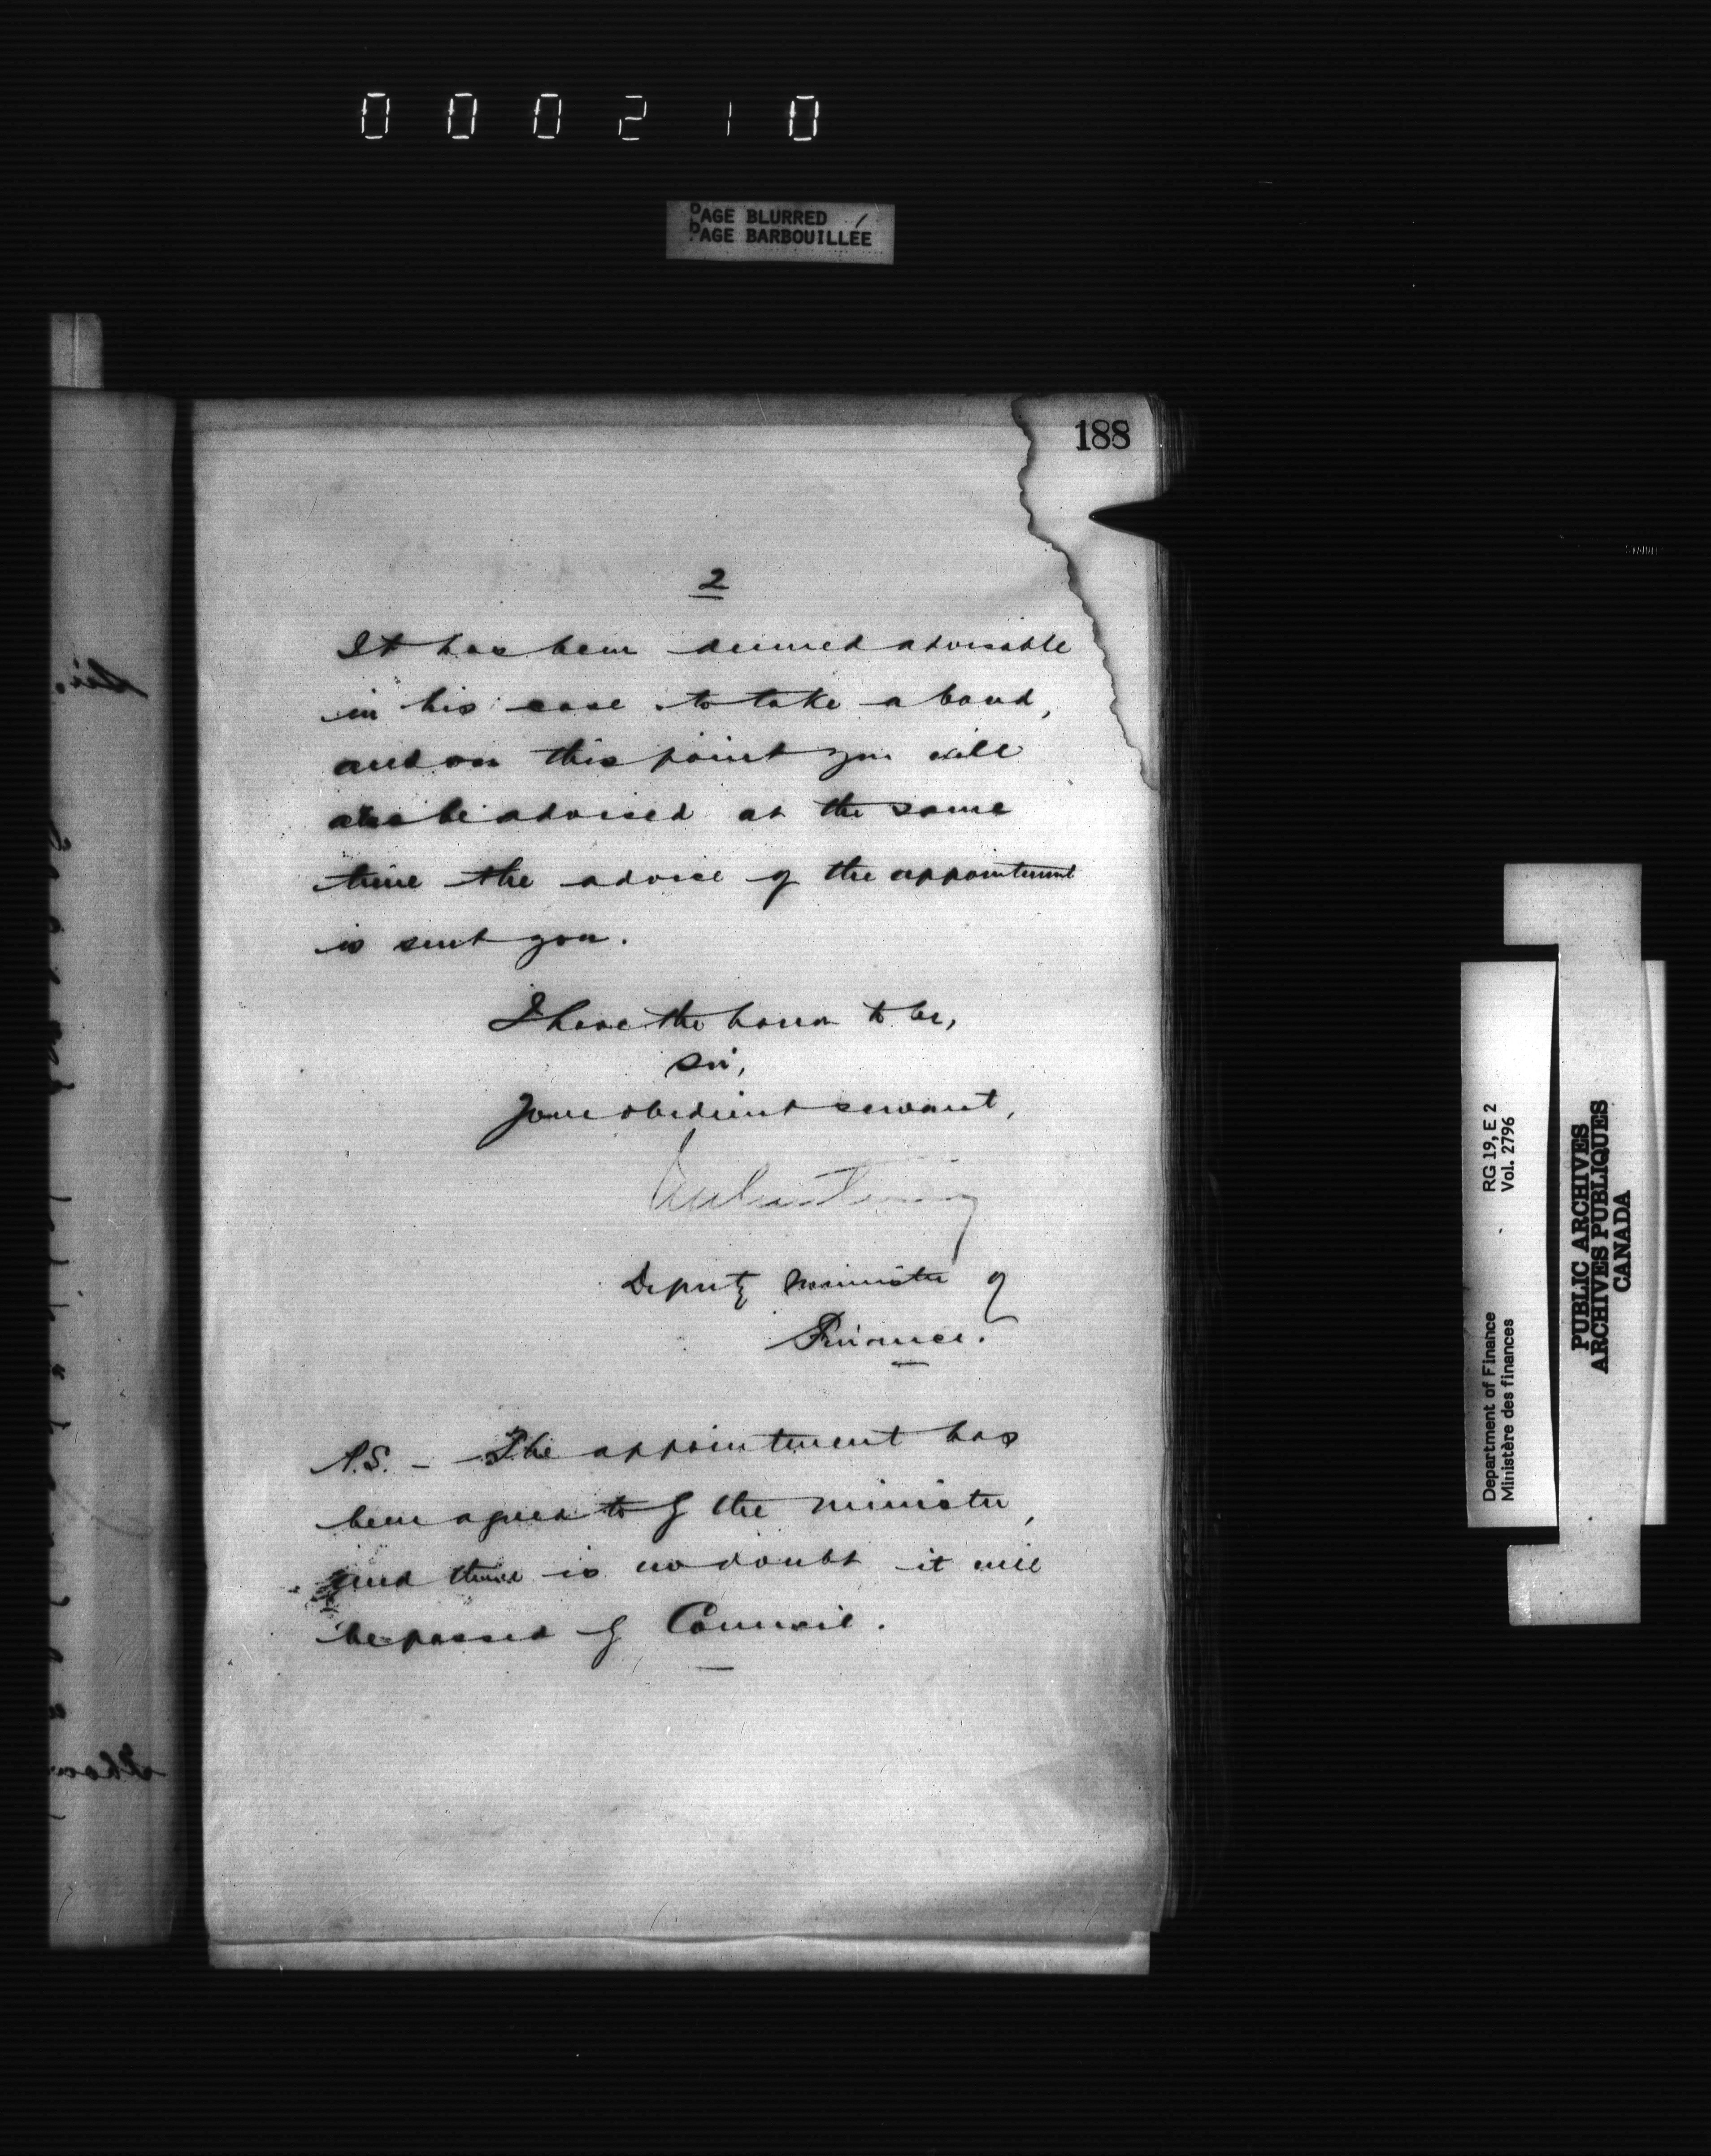 000210
PAGE BLURRED
PAGE BARBOUILLÉE
188
2
It has been deemed advisable
in his case to take a bond,
and on this point you will
also be advised at the same
time the advice of the appointment
is sent you.
I have the honor to be,
Sir,
Your obedient servant,
Deputy Minister of
Finance.
P.S. - The appointment has
been agreed to by the Minister,
and there is no doubt it will
be passed by Council.
Sir.
RG 19, E 2
Vol. 2796
Department of Finance
Ministère des finances
PUBLIC ARCHIVES
ARCHIVES PUBLIQUES
CANADA